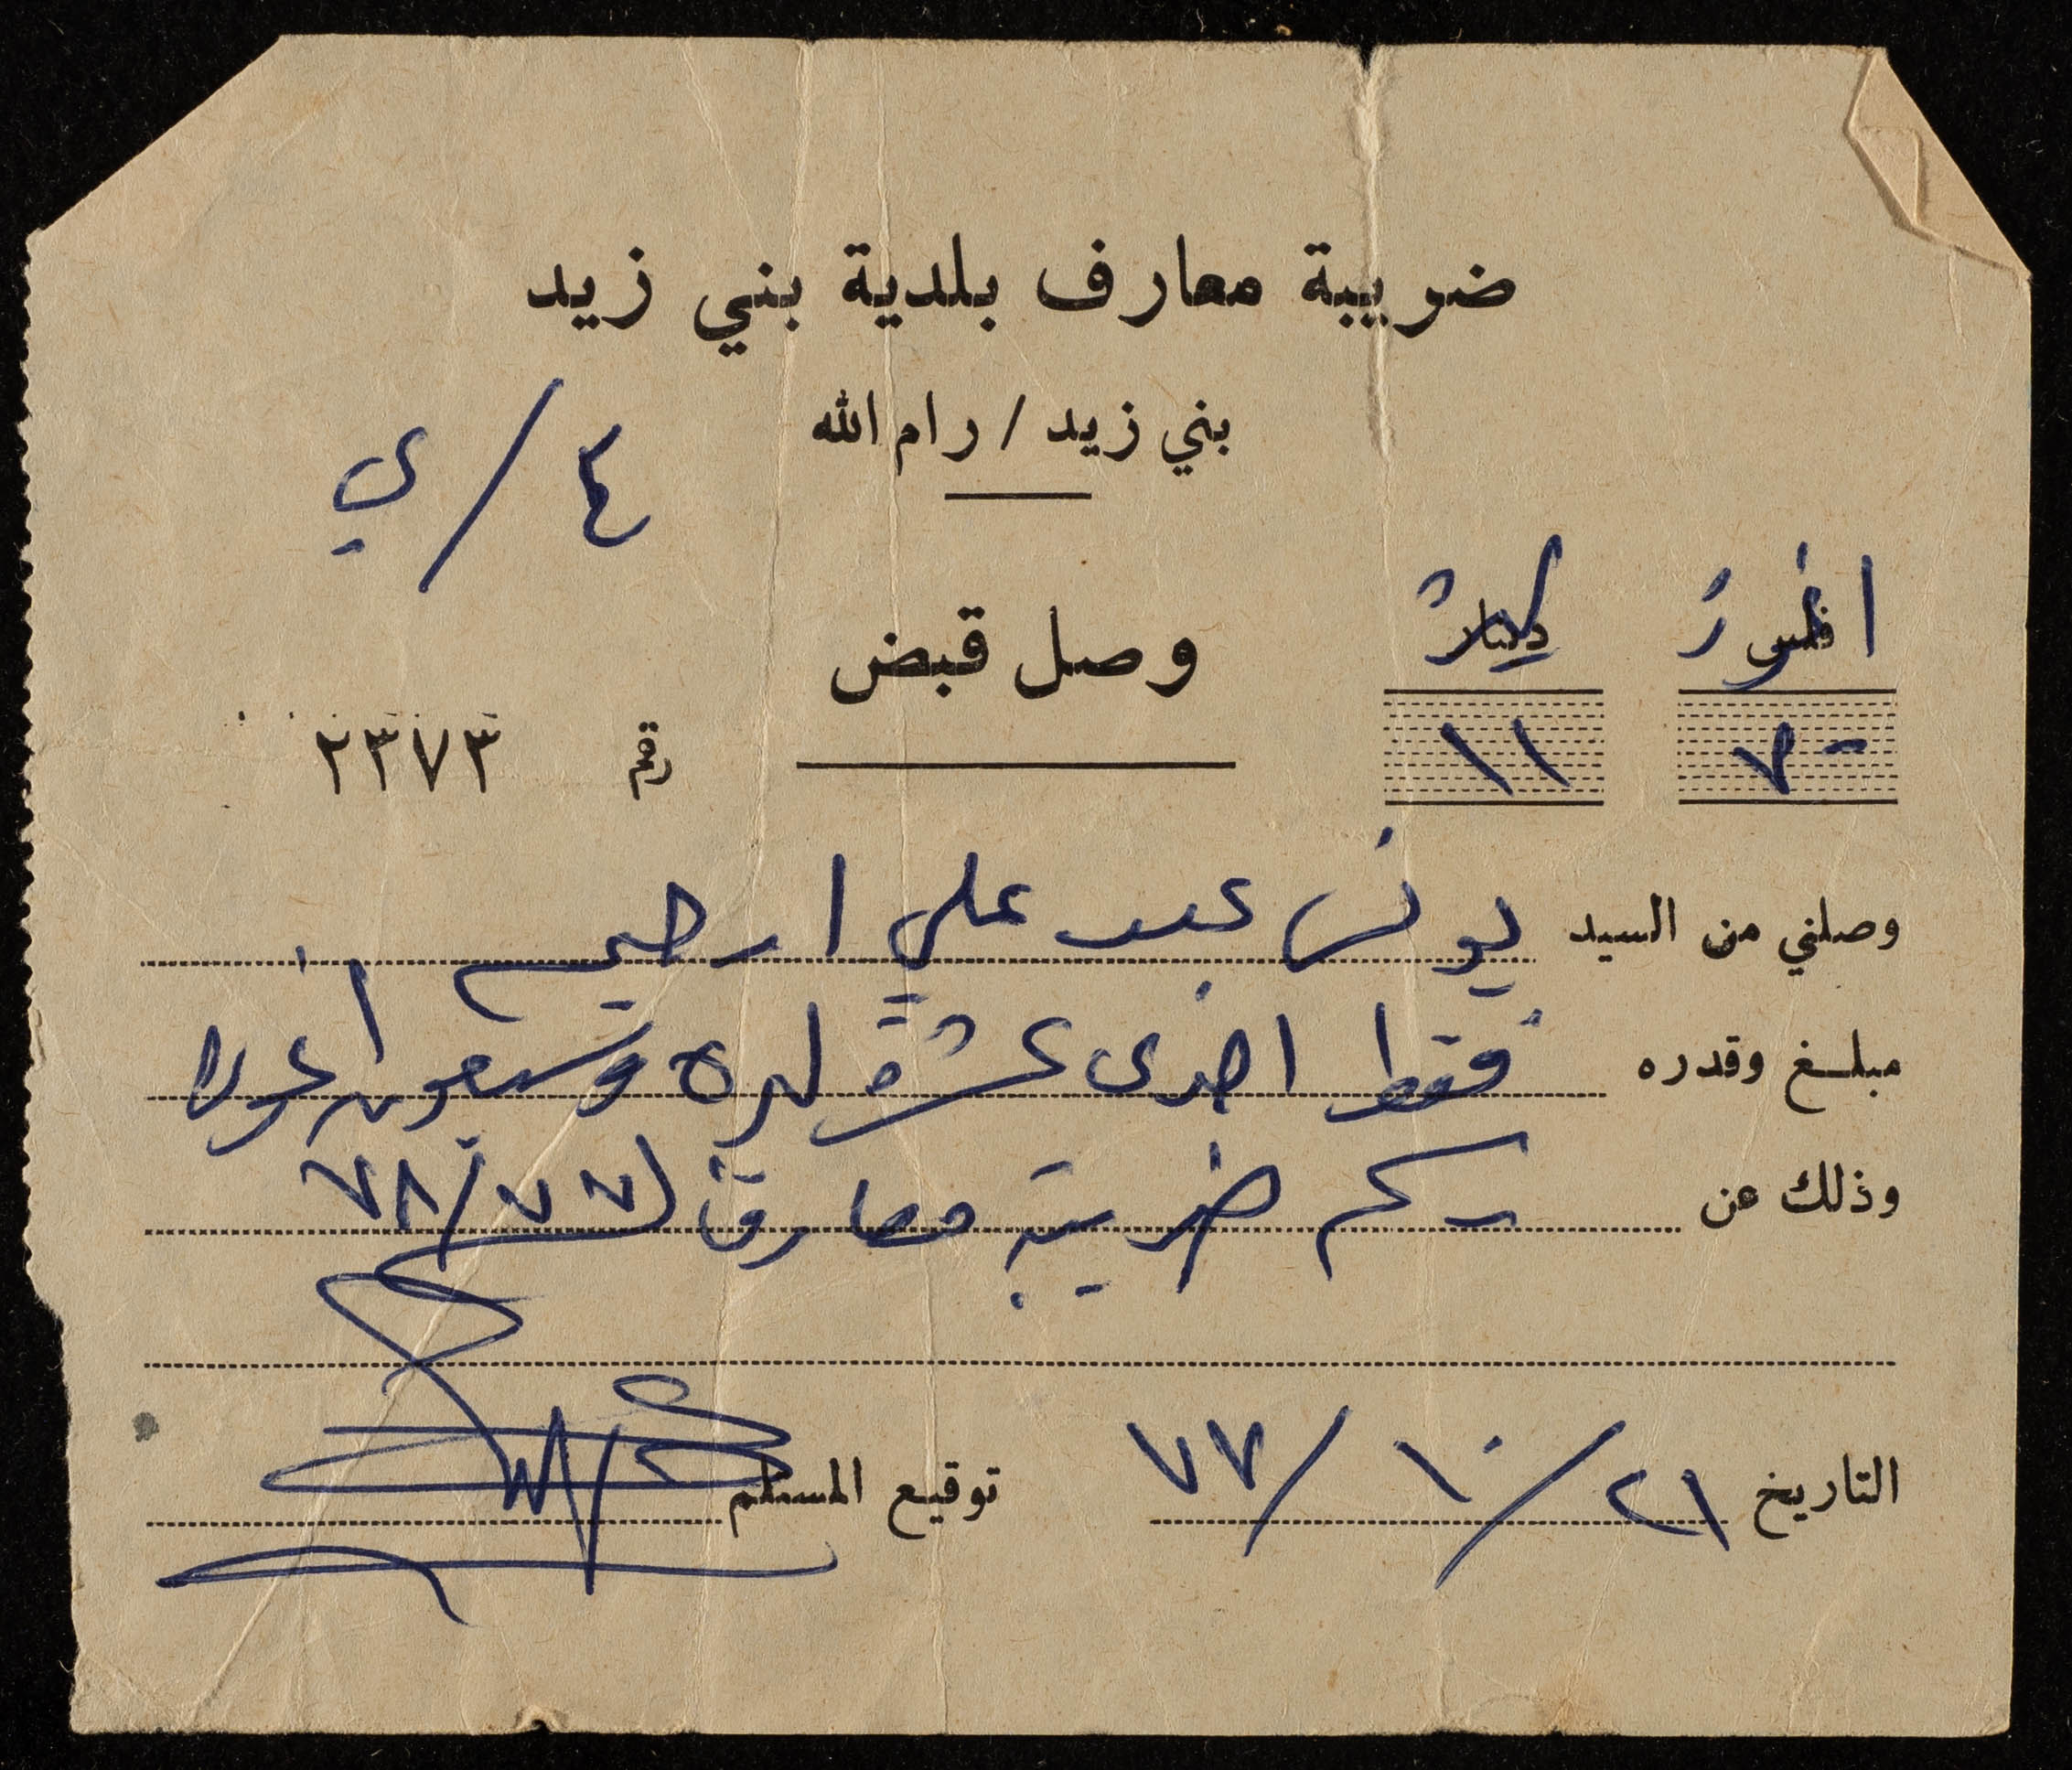 ضريبة معارف بلدية بني زيد
بني زيد / رام الله
٤/ي
وصل قبض
اغورة ليرة
فلس دينار
٧٠ ١١
رقم ٢٣٧٣
وصلني من السيد يونس عبد علي ارحيم
مبلغ وقدره فقط احدى عشرة ليرة وسبعون اغورة
وذلك عن رسم ضريبة معارف ٧٧/٧٨
التاريخ ٢١/١٠/٧٧ توقيع المستلم